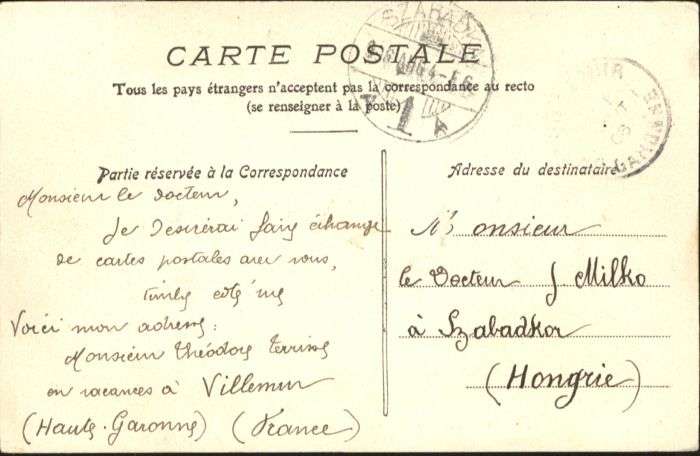 CARTE POSTALE
Tous les pays étrangers n'acceptent pas la correspondance au recto
(se renseigner à la poste)
Partie réservée à la Correspondance
Monsieur le docteur,
Je desirerai faire échange
de cartes postales avec vous,
Voici mon adresse:
Monsieur Théodore
en vacances à Villemur
(Haute-Garonne) (France)
Adresse du destinataire
Monsieur
le Docteur J. Milko
à Szabadkor
(Hongrie)
SZABAD
1
GARONNE